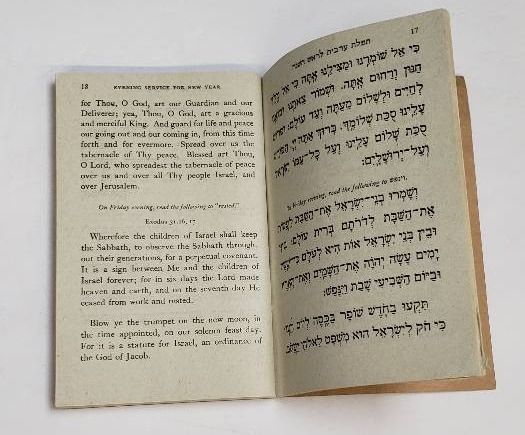 18 EVENING SERVICE FOR NEW YEAR
for Thou, O God, art our Guardian and our
Deliverer; yea, Thou, O God, art a gracious
and merciful King. And guard for life and peace
our going out and our coming in, from this time
forth and for evermore. Spread over us the
tabernacle of Thy peace. Blessed art Thou,
O Lord, who spreadest the tabernacle of peace
over us and over all Thy people Israel, and
over Jerusalem.
On Friday evening, read the following to "rested."
Exodus 31.16, 17
Wherefore the children of Israel shall keep
the Sabbath, to observe the Sabbath through-
out their generations, for a perpetual covenant.
It is a sign between Me and the children of
Israel forever; for in six days the Lord made
heaven and earth, and on the seventh day He
ceased from work and rested.
Blow ye the trumpet on the new moon, in
the time appointed, on our solemn feast day.
For it is a statute for Israel, an ordinance of
the God of Jacob.
תפלת ערבית לראש השנה 17
כִּי אֵל שׁוֹמְרֵנוּ וּמַצִּילֵנוּ אָתָּה כִּי אֵל
חַנּוּן וְרַחוּם אָתָּה. וּשְׁמוֹר צֵאתֵנוּ
לְחַיִּים וּלְשָׁלוֹם מֵעַתָּה וְעַד עוֹלָם.
עָלֵינוּ סֻכַּת שְׁלוֹמֶךָ. בָּרוּךְ אַתָּה
סֻכַּת שָׁלוֹם עָלֵינוּ וְעַל כָּל־עַמּוֹ יִשְׂרָאֵל
וְעַל־יְרוּשָׁלָיִם:
Friday evening, read the following to וינפש.
וְשָׁמְרוּ בְנֵי־יִשְׂרָאֵל אֶת־הַשַּׁבָּת לַעֲשׂוֹת
אֶת־הַשַּׁבָּת לְדֹרֹתָם בְּרִית עוֹלָם:
וּבֵין בְּנֵי יִשְׂרָאֵל אוֹת הִיא לְעוֹלָם
יָמִים עָשָׂה יְהוָה אֶת־הַשָּׁמַיִם וְאֶת־
וּבַיּוֹם הַשְּׁבִיעִי שָׁבַת וַיִּנָּפַשׁ:
תִּקְעוּ בַחֹדֶשׁ שׁוֹפָר בַּכֶּסֶה לְיוֹם
כִּי חֹק לְיִשְׂרָאֵל הוּא מִשְׁפָּט לֵאלֹהֵי יַעֲקֹב: